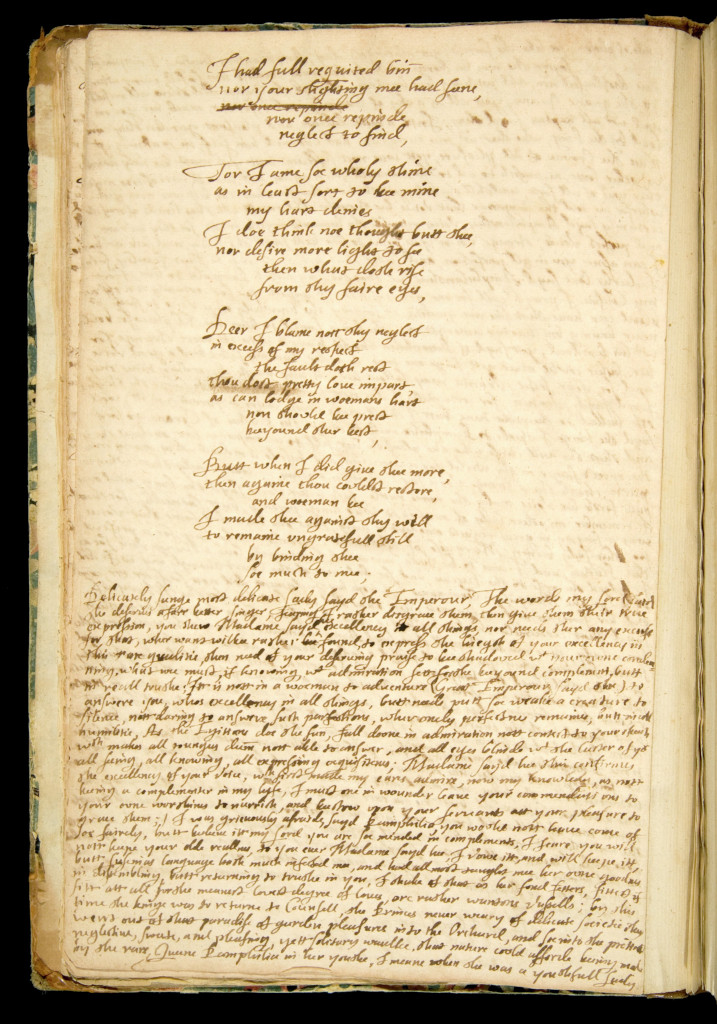 I had full requited bin
nor your slighting mee had seene,
nor once repinde
nor once repinde
neglect to find,
For I ame soe wholy thine
as in least sort to bee mine
my hart denies
I doe think noe thought butt thee,
nor desire more light to see
then what doth rise
from thy faire eyes,
Heer I blame nott thy neglect
in excess of my respect
the fault doth rest
thou dost pretty love impart,
as can lodge in woemans hart
non should bee prest
beeyound ther best,
Butt when I did give thee more,
then againe thou couldst restore,
and woeman bee
I made thee against thy will
to remaine ungratefull still
by binding thee
soe much to mee,
Delicately sunge most delicate Lady sayd the Emperour, The words my Lord
she deserve a farr better singer, rather disgrace them, then give them their true
expression, you shew Madame sayd excellency in all things, nor needs ther any excuse
for that, wher want wilbe rather found, to express the height of your excellency in
this rare qualitie then need of your deserving praise to bee shadowed
what one must, if knowing, admiration sett forthe beeyound complement, butt
in reall truthe; Itt is nott in a woeman to adventure (Great Emperour sayd she) to
answere you, whos excellency in all things, butt needs putt soe weake a creature to
silence, nott daring to answere such perfections, wher only perfectnes remaines, butt in
humilitie, As the Egiptians doe the sun, fall downe in admiration nott contest to your
wch makes all toungues dum nott able to answer, and all eyes blinde wt the luster of yr
all seeing, all knowing, all expressing; Madame sayd hee this confirmes
the excellency of your voice, wch first made my ears admire, now my knowledg, as nott
beeing a complementer in my lyfe, I must one in wounder leave your commendations to
your owne worthines to nurrish, and bestow upon your servants att your pleasure to
grace them; I was grieviously afrayd, sayd Pamphilia, you would nott have come of
soe fairely, butt beleeve itt my Lord you are soe mended in complements, I feare you will
nott hape your olde to you ever Madame sayd hee, I vowe itt, and will keepe itt,
butt language both much infected mee, and had allmost taught mee her owne goodnes
in dissembling, butt returning to truthe in you, I shake of that as her fond fetters, fittest if
fitt att all for the meanest lovers degree of love, or rather wantons Vassalls; by this
time the kinge was to returne to Counsell, the Princes never weary of delicate societie they
went out of that paradise of garden pleasure into the Orcherd, and soe into the prittiest
neglective, sweete, and pleasing, yett solitary walke, that nature could afforde beeing made
by the rare, Queene Pamphilia in her youthe, I meane when she was a youthfull Lady